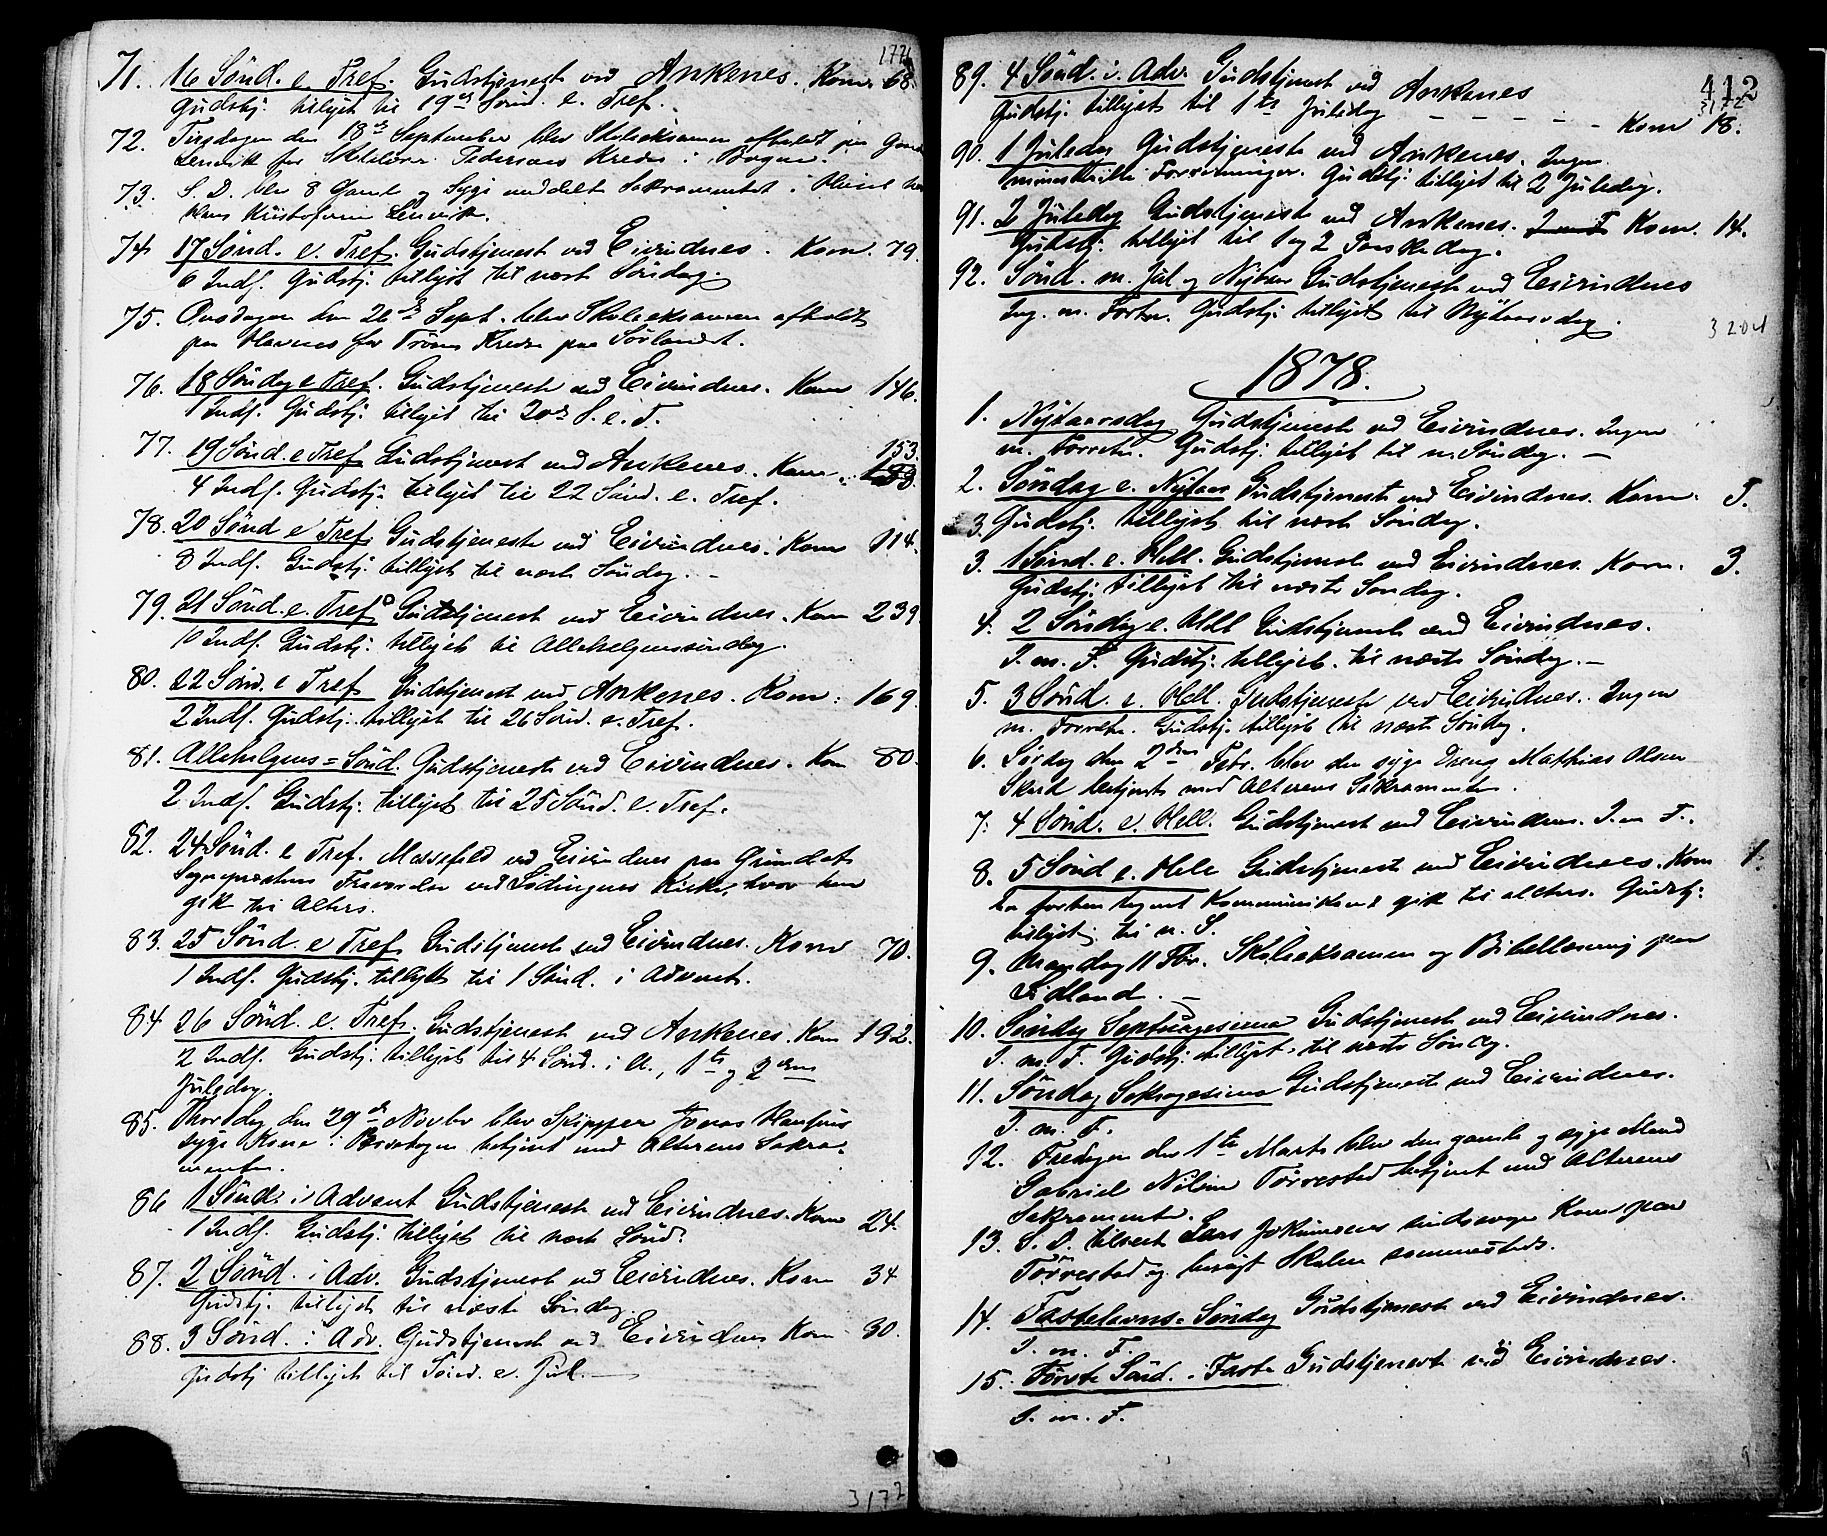 1772
71. 16 Sönd. e. Tref. Gudstjenest ved Ankenes. Kom. 68.
Gudstj. tillyst til 19de Sönd. e. Tref.
72. Tirsdagen den 18de September blev Skoleeksamen afholdt paa
Lenvik for Skolelærer Pedersens Kreds i Bogen.
73. S. D. blev 8 Gamle og Syge meddelt Sakramentet i
Hans Kristofersen Lenvik.
74 17 Sönd. e. Tref. Gudstjenest ved Eivindnes. Kom. 79.
6 Indf. Gudstj. tillyst til næste Söndag.
75. Onsdagen den 26de Sept. blev Skoleeksamen afholdt
paa Havnes for Kreds paa Sörlandet.
76. 18 Söndag e Tref. Gudstjeneste ved Eivindnes. Kom 146.
1 Indf. Gudstj. tillyst til 20de S. e. T.
77. 19 Sönd. e Tref. Gudstjenest ved Ankenes. Kom. 153.
4 Indf. Gudstj. tillyst til 22 Sönd. e. Tref.
78. 20 Sönd e Tref. Gudstjeneste ved Eivindnes. Kom 114.
8 Indf. Gudstj. tillyst til næste Söndag. -
79. 21 Sönd. e. Tref. Gudstjenest ved Eivindnes. Kom 239
10 Indf. Gudstj. tillyst til Allehelgenssöndag.
80. 22 Sönd. e Tref Gudstjenest ved Ankenes. Kom: 169.
2 Indf. Gudstj. tillyst til 26 Sönd. e. Tref.
81. Allehelgens=Sönd. Gudstjeneste ved Eivindnes. Kom 80.
2 Indf. Gudstj. tillyst til 25 Sönd. e. Tref.
82. 24 Sönd. e Tref. Messefald ved Eivindnes paa Grund af
Sognepræstens Fraværelse ved Lödingens Kirke, hvor han
gik til Alters.
83. 25 Sönd. e Tref. Gudstjenest ved Eivindnes. Kom 70.
1 Indf. Gudstj. tillyst til 1 Sönd. i Advent.
84 26 Sönd. e. Tref. Gudstjenest ved Ankenes. Kom 192.
2 Indf. Gudstj. tillyst til 4 Sönd. i A., 1te og 2den
Juledag.
85. Thorsdag den 29de Novbr blev Skipper Jonas Hansens
syge Kone i betjent med Alterens Sakra-
mente.
86 1 Sönd. i Advent Gudstjeneste ved Eivindnes. Kom 24.
1 Indf. Gudstj. tillyst til næste Sönd.
87. 2 Sönd. i Adv. Gudstjenest ved Eivindnes. Kom 34
Gudstj. tillyst til næste Söndag.
88. 3 Sönd. i Adv. Gudstjenest ved Eivindnes Kom 30.
Gudstj tillyst til Sönd. e. Jul. -
3172
412
3172
89. 4 Sönd. i Adv. Gudstjenest ved Ankenes
Gudstj. tillyst til 1te Juledag - - - - - Kom 18.
90. 1 Juledag Gudstjeneste ved Ankenes. Ingen
ministerielle Forretninger. Gudstj. tillyst til 2 Juledag.
91. 2 Juledag Gudstjeneste ved Ankenes. I m F Kom. 14.
Gudstj. tillyst til 1 og 2 Paaskedag.
92. Sönd. m. Jul og Nytaar Gudstjeneste ved Eivindnes
Ing. m. Forr. Gudstj. tillyst til Nytaarsdag.
3204
1878.
1. Nytaarsdag Gudstjenest ved Eivindnes. Ingen
m. Forretn. Gudstj. tillyst til n. Söndag. -
2. Söndag e. Nytaar Gudstjeneste ved Eivindnes. Kom. 5.
3. Gudstj. tillyst til næste Söndag.
3. 1 Sönd. e. Hell. Gudstjenest ved Eivindnes. Kom. 3.
Gudstj. tillyst til næste Söndag.
4. 2 Söndag e. Hell Gudstjenest ved Eivindnes.
I. m. F. Gudstj. tillyst til næste Söndag. -
5. 3 Sönd. e. Hell. Gudstjeneste ved Eivindnes. Ingen
m. Forretn. Gudstj. tillyst til næste Söndag.
6. Lördag den 2den Febr. blev den syge Dreng Mathias Olsen
betjent med Alterens Sakramente.
7. 4 Sönd. e. Hell. Gudstjenest ved Eivindnes. I. m F.
8. 5 Sönd e. Hell Gudstjenest ved Eivindnes. Kom 1.
Kommunikant gik til alters. Gudstj.
tillyst til n. S.
9. Mandag 11 Febr. Skoleeksamen og Bibellæsning paa
Lidland. -
10. Söndag Septuagesima Gudstjenest ved Eivindnes.
I. m. F. Gudstj. tillyst til næste Söndag.
11. Söndag Seksagesima Gudstjenest ved Eivindnes.
I. m. F.
12. Fredagen den 1te Marts blev den gamle og syge Mand
Gabriel Nilsen Törrestad betjent med Alterens
Sakramente.
13. S. D. tilsert Lars Jokumsens sindssyge Kone paa
Törrestad og besögt Skolen sammesteds.
14. Fastelavns-Söndag Gudstjenest ved Eivindnes.
I. m. F.
15. Förste Sönd. i Faste Gudstjenest ved Eivindnes.
I. m. F.